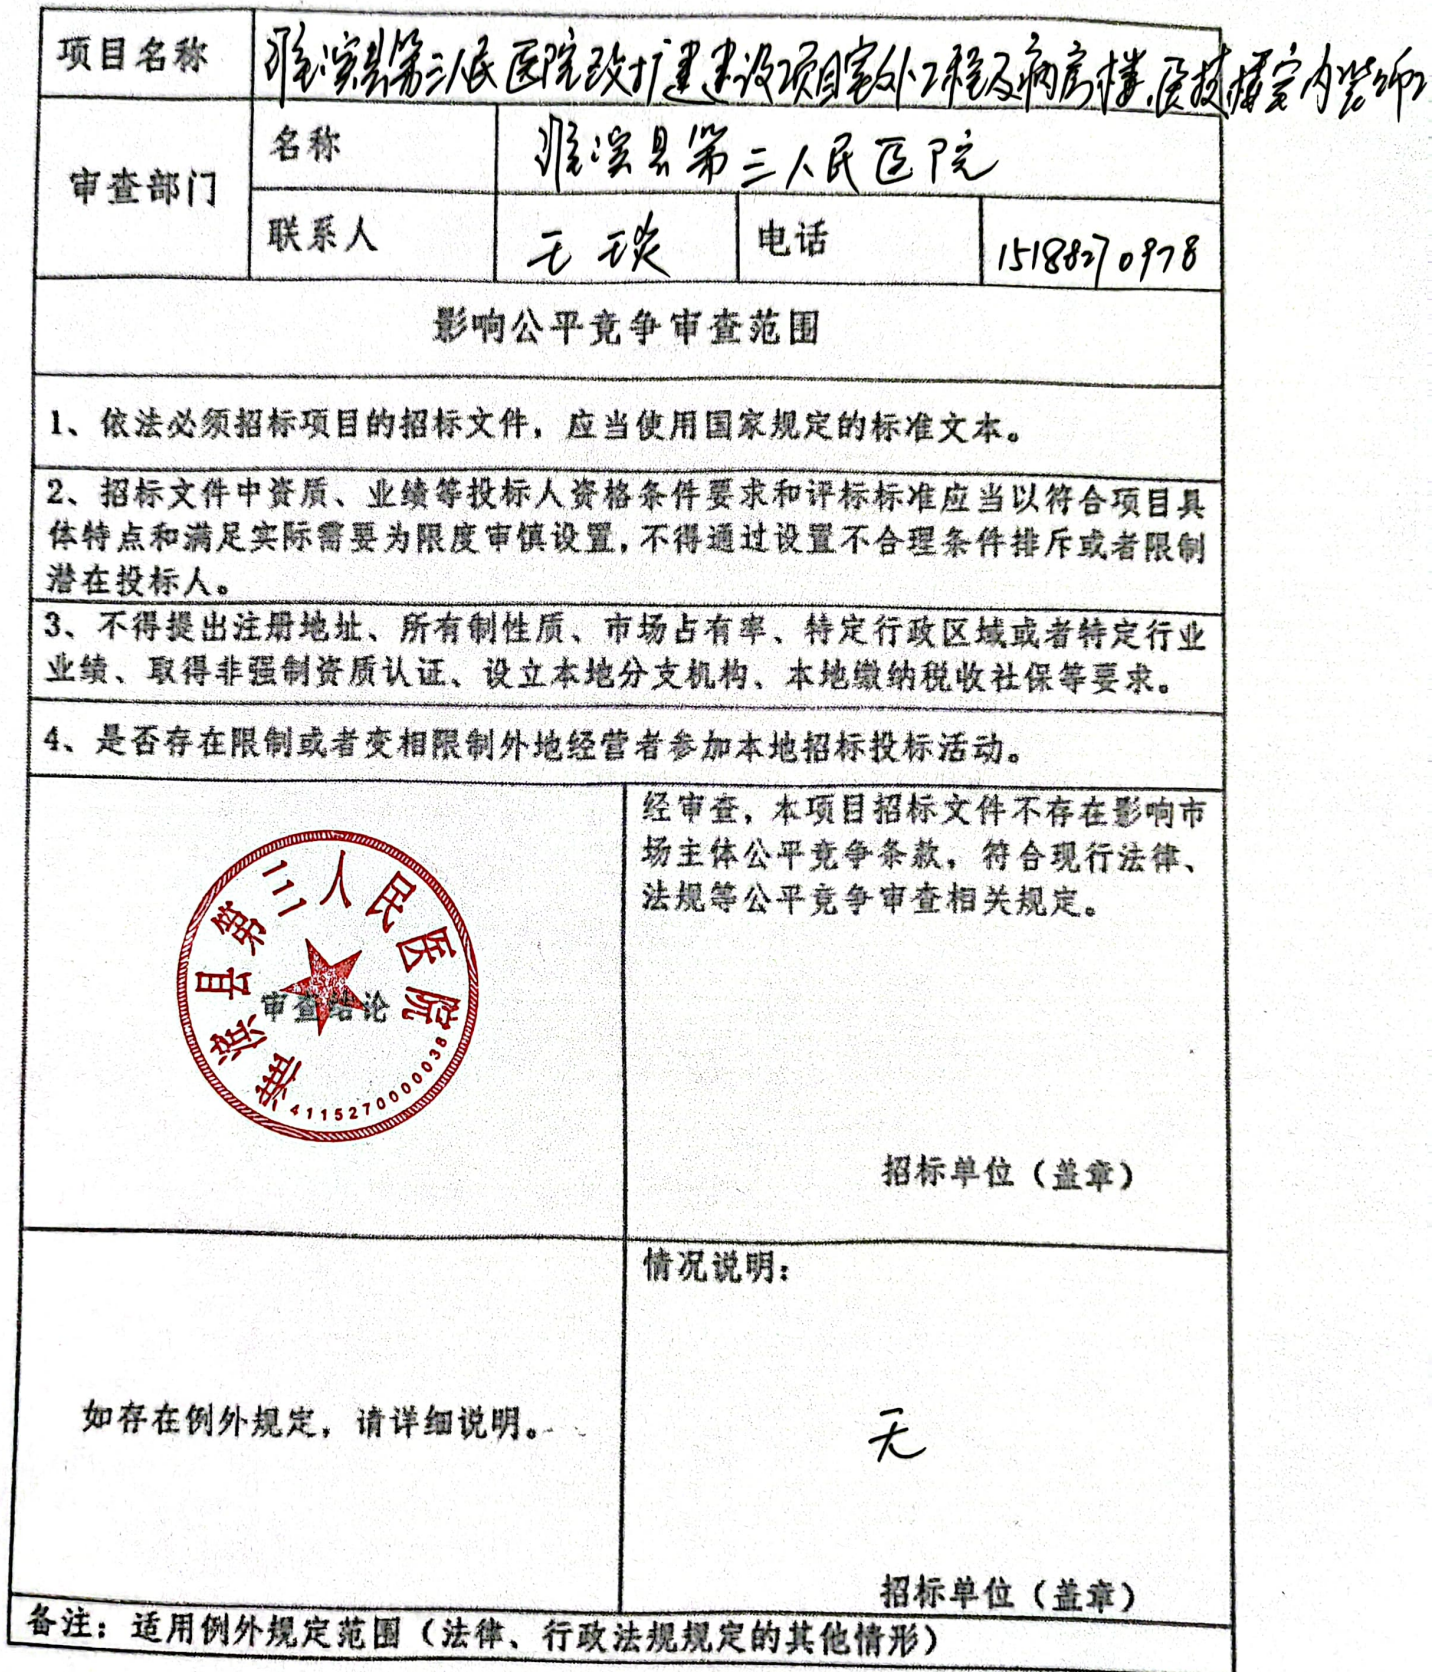 项目名称
淮滨县第三人民医院改扩建建设项目室外工程及病房楼、医技楼室内装饰
审查部门
名称
淮滨县第三人民医院
联系人
王琰
电话
15188270978
影响公平竞争审查范围
1、依法必须招标项目的招标文件，应当使用国家规定的标准文本。
2、招标文件中资质、业绩等投标人资格条件要求和评标标准应当以符合项目具
体特点和满足实际需要为限度审慎设置，不得通过设置不合理条件排斥或者限制
潜在投标人。
3、不得提出注册地址、所有制性质、市场占有率、特定行政区域或者特定行业
业绩、取得非强制资质认证、设立本地分支机构、本地缴纳税收社保等要求。
4、是否存在限制或者变相限制外地经营者参加本地招标投标活动。
审查结论
淮滨县第三人民医院
4115270000038
经审查，本项目招标文件不存在影响市
场主体公平竞争条款，符合现行法律、
法规等公平竞争审查相关规定。
招标单位（盖章）
如存在例外规定，请详细说明。
情况说明：
无
招标单位（盖章）
备注：适用例外规定范围（法律、行政法规规定的其他情形）